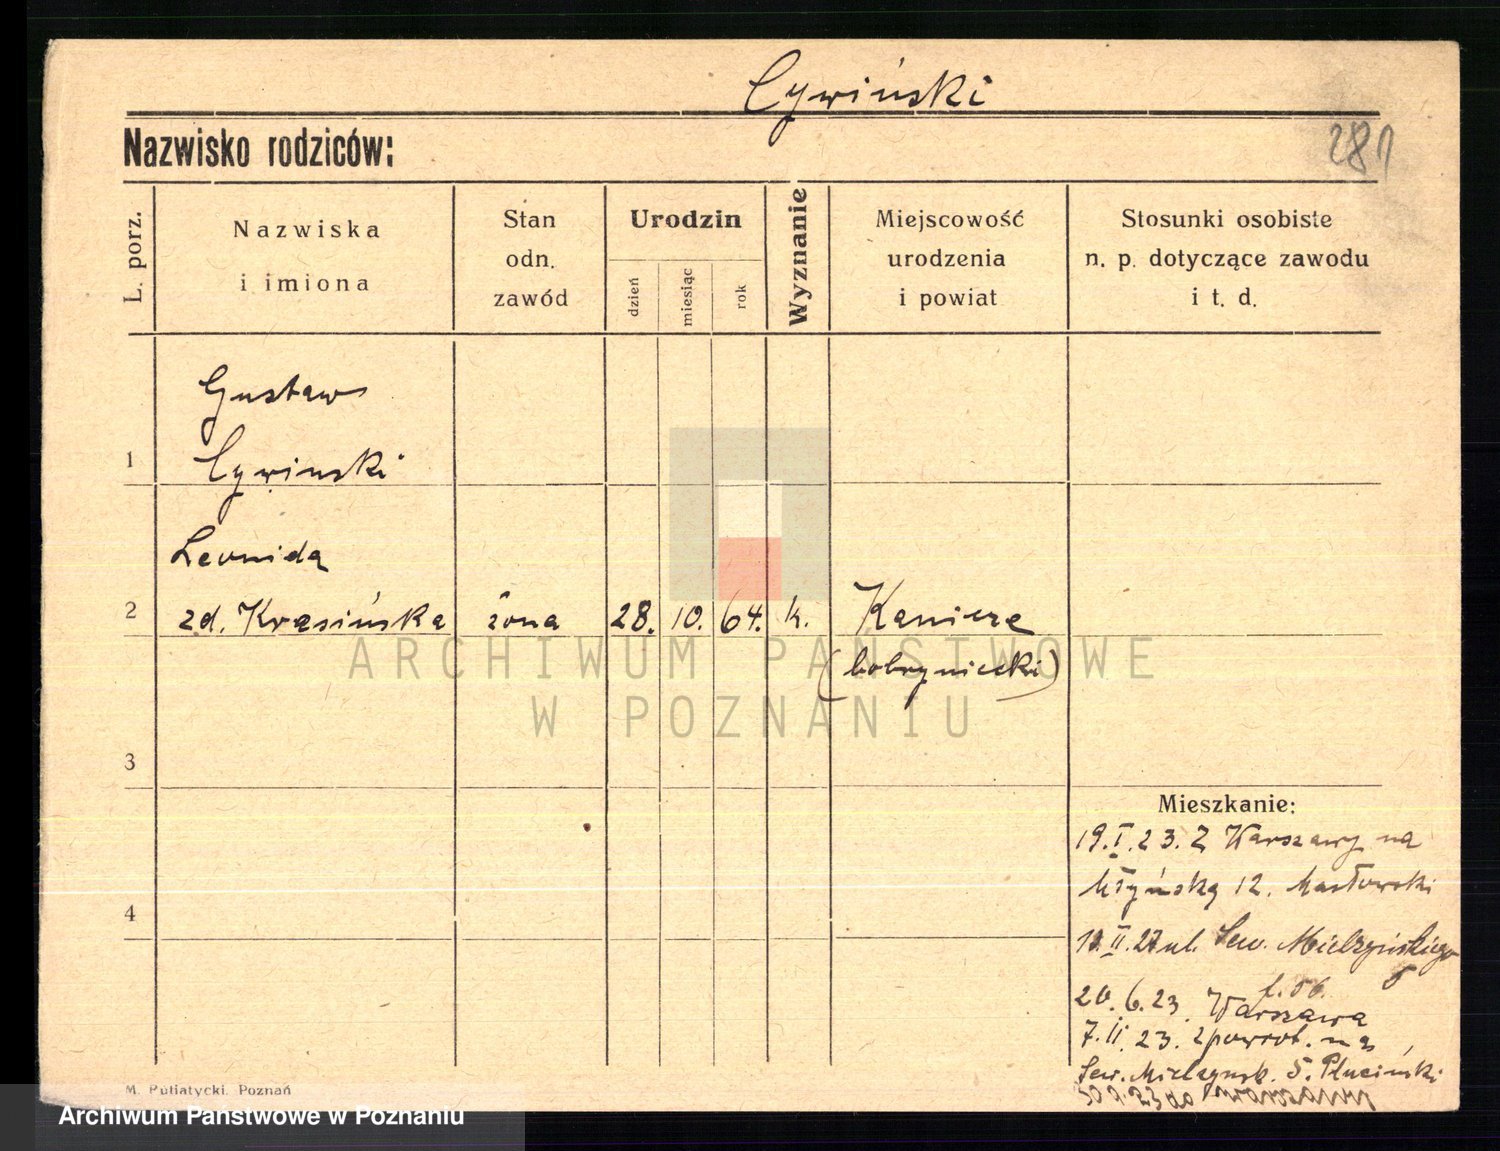 Cywiński
Nazwisko rodziców:
281
L. porz.
Nazwiska
i imiona
Stan
odn.
zawód
Urodzin
dzień
miesiąc
rok
Wyznanie
Miejscowość
urodzenia
i powiat
Stosunki osobiste
n. p. dotyczące zawodu
i t. d.
Gustaw
1 Cywinski
Leonida
2 zd. Krasińska żona 28. 10. 64. k. Kaniera
(bobryniecki)
ARCHIWUM PAŃSTWOWE
W POZNANIU
3
Mieszkanie:
19.I.23. Z Warszawy na
Młyńską 12. Masłowski
4
II. ul. Sew. Mielżyńskiego
5
20.6.23. Warszawa
7.II.23. zpowrot. na
Sew. Mielżynsk. 5. Pluciński
23 do Warszawy
M. Putiatycki, Poznań
Archiwum Państwowe w Poznaniu